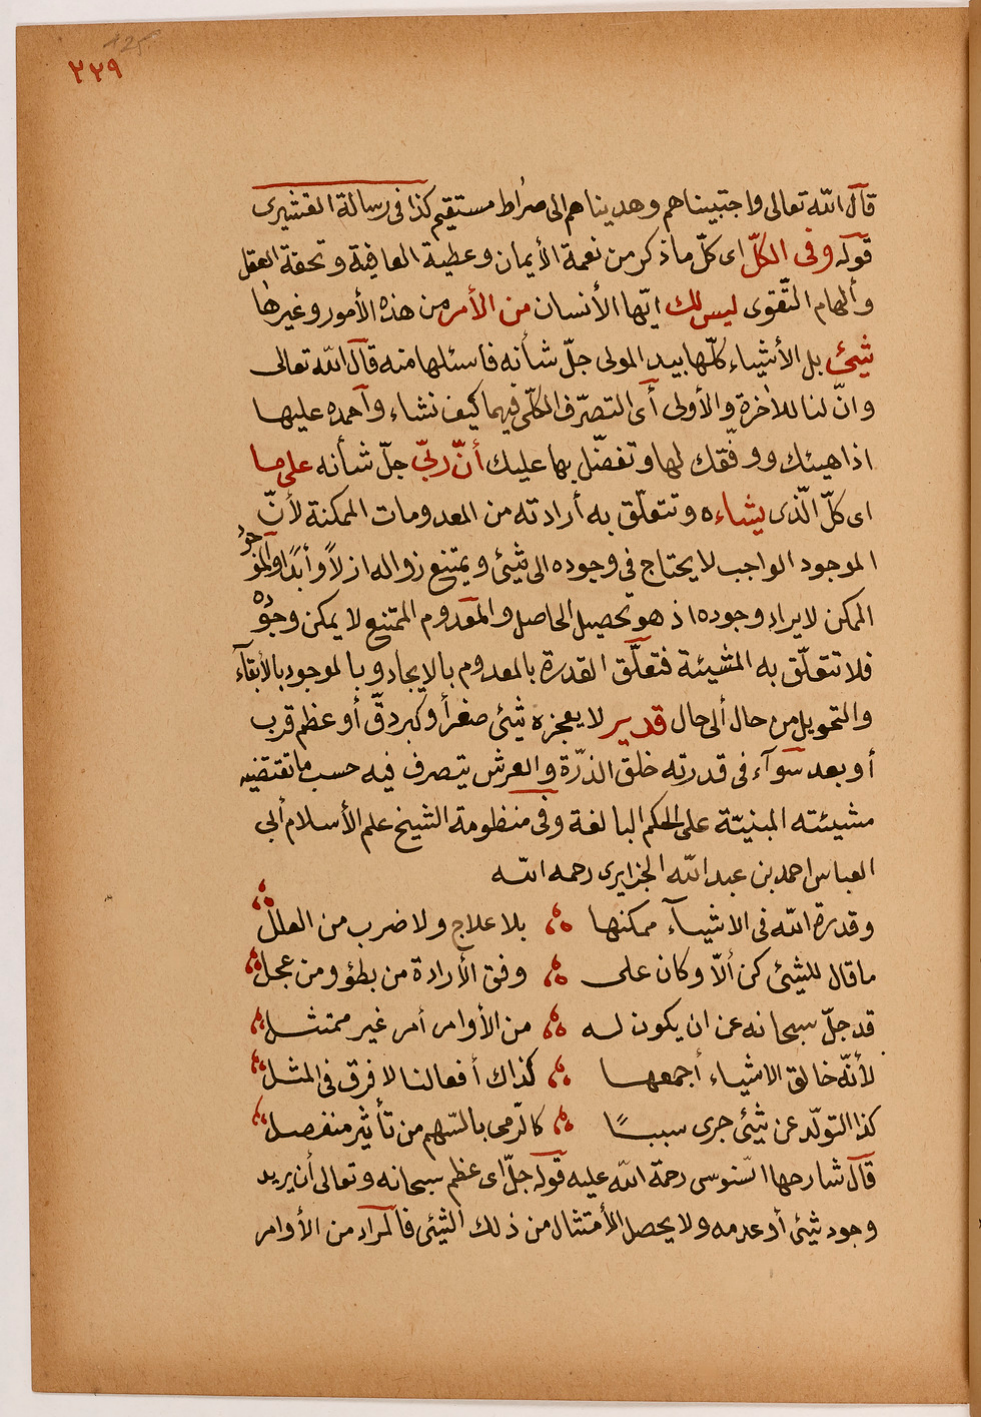 ٢٢٩
قال الله تعالى واجتبيناهم وهديناهم الى صراط مستقيم كذا فى رسالة القشيرى
قوله وفى الكلّ اى كلّ ما ذكر من نعمة الأيمان وعطية العافية وتحفة العقل
وألهام التّقوى ليس لك ايّها الأنسان من الأمر من هذه الأمور وغيرها
شيئ بل الأشياء كلّها بيد المولى جلّ شأنه فاسئلها منه قال الله تعالى
وانّ لنا للاٰخرة والأولى أى التصرّف الكلّى فيهما كيف نشاء وأحمده عليها
اذا هيئك ووفّقك لها وتفضّل بها عليك أنّ ربّي جلّ شأنه على ما
اى كلّ الّذى يشاءه وتتعلّق به أرادته من المعدومات الممكنة لأنّ
الموجود الواجب لا يحتاج فى وجوده الى شيئ ويمتنع زواله ازلاً وأبدًا والموجود
الممكن لا يراد وجوده اذ هو تحصيل الحاصل والمعدوم الممتنع لا يمكن وجوده
فلا تتعلّق به المشيئة فتعلّق القدرة بالمعدوم بالايجاد وبالموجود بالأبقآء
والتحويل من حال ألى حال قدير لا يعجزه شيئ صغر أو كبر دقّ أو عظم قرب
أو بعد سوآء فى قدرته خلق الذرّة والعرش يتصرف فيه حسب ما تقتضيه
مشيئته المبنيّة على الحكم البالغة وفى منظومة الشيخ علم الأسلام أبي
العباس احمد بن عبد الله الجزايرى رحمه الله
وقدرة الله فى الاشيآء ممكنها بلا علاج ولا ضرب من العلل
ما قال للشيئ كن ألاّ وكان على وفق الأرادة من بطئ ومن عجل
قد جلّ سبحانه عن ان يكون له من الأوامر أمر غير ممتثل
لأنّه خالق الاشياء أجمعها كذاك أفعالنا لا فرق فى المثل
كذا التولّد عن شيئ جرى سببًا كالرّمى بالسّهم من تأثير منفصل
قال شارحها السّنوسى رحمة الله عليه قوله جلّ اى عظم سبحانه وتعالى أن يريد
وجود شيئ أو عدمه ولا يحصل الأمتثال من ذلك الشيئ فالمراد من الأوامر